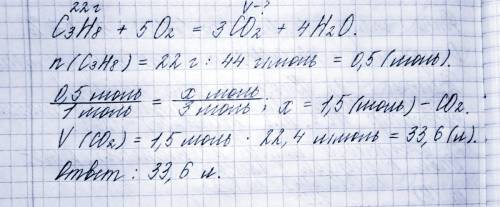 22г V-?
C3H8 + 5O2 = 3CO2 + 4H2O.
n(C3H8) = 22 г : 44 г/моль = 0,5 (моль).
0,5 моль / 1 моль = x моль / 3 моль ; x = 1,5 (моль) - CO2.
V (CO2) = 1,5 моль · 22,4 л/моль = 33,6 (л).
Ответ : 33,6 л.